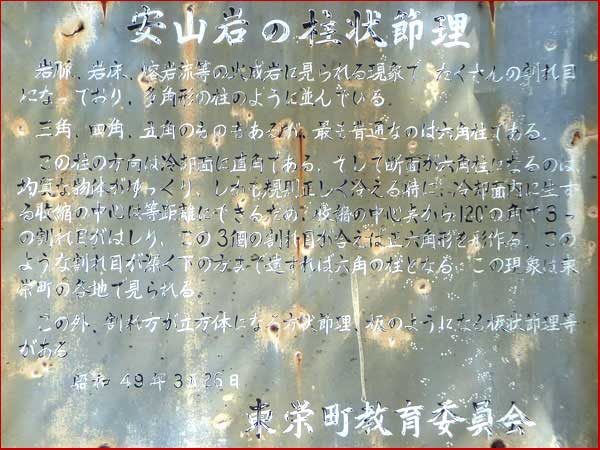 安山岩の柱状節理
岩脈、岩床、熔岩流等の火成岩に見られる現象で、たくさんの割れ目
になっており、多角形の柱のように並んでいる。
三角、四角、五角のものもあるが、最も普通なのは六角柱である。
この柱の方向は冷却面に直角である。そして断面が六角柱になるのは、
均質な物体がゆっくり、しかも規則正しく冷える時に、冷却面内に生ず
る収縮の中心は等距離にできるため、収縮の中心点から120°の角で3つ
の割れ目がはしり、この3個の割れ目が合えば正六角形を形作る。この
ような割れ目が深く下の方まで達すれば六角の柱となる。この現象は東
栄町の各地で見られる。
この外、割れ方が立方体になる方状節理、板のようになる板状節理等
がある
昭和49年3月26日
東栄町教育委員会